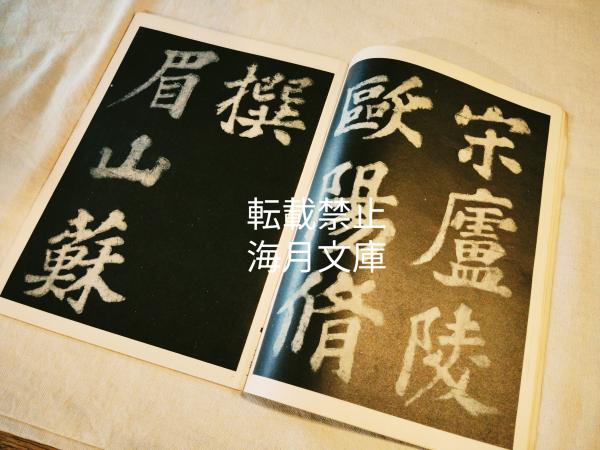 宋廬陵
歐陽脩
撰
眉山蘇
転載禁止
海月文庫